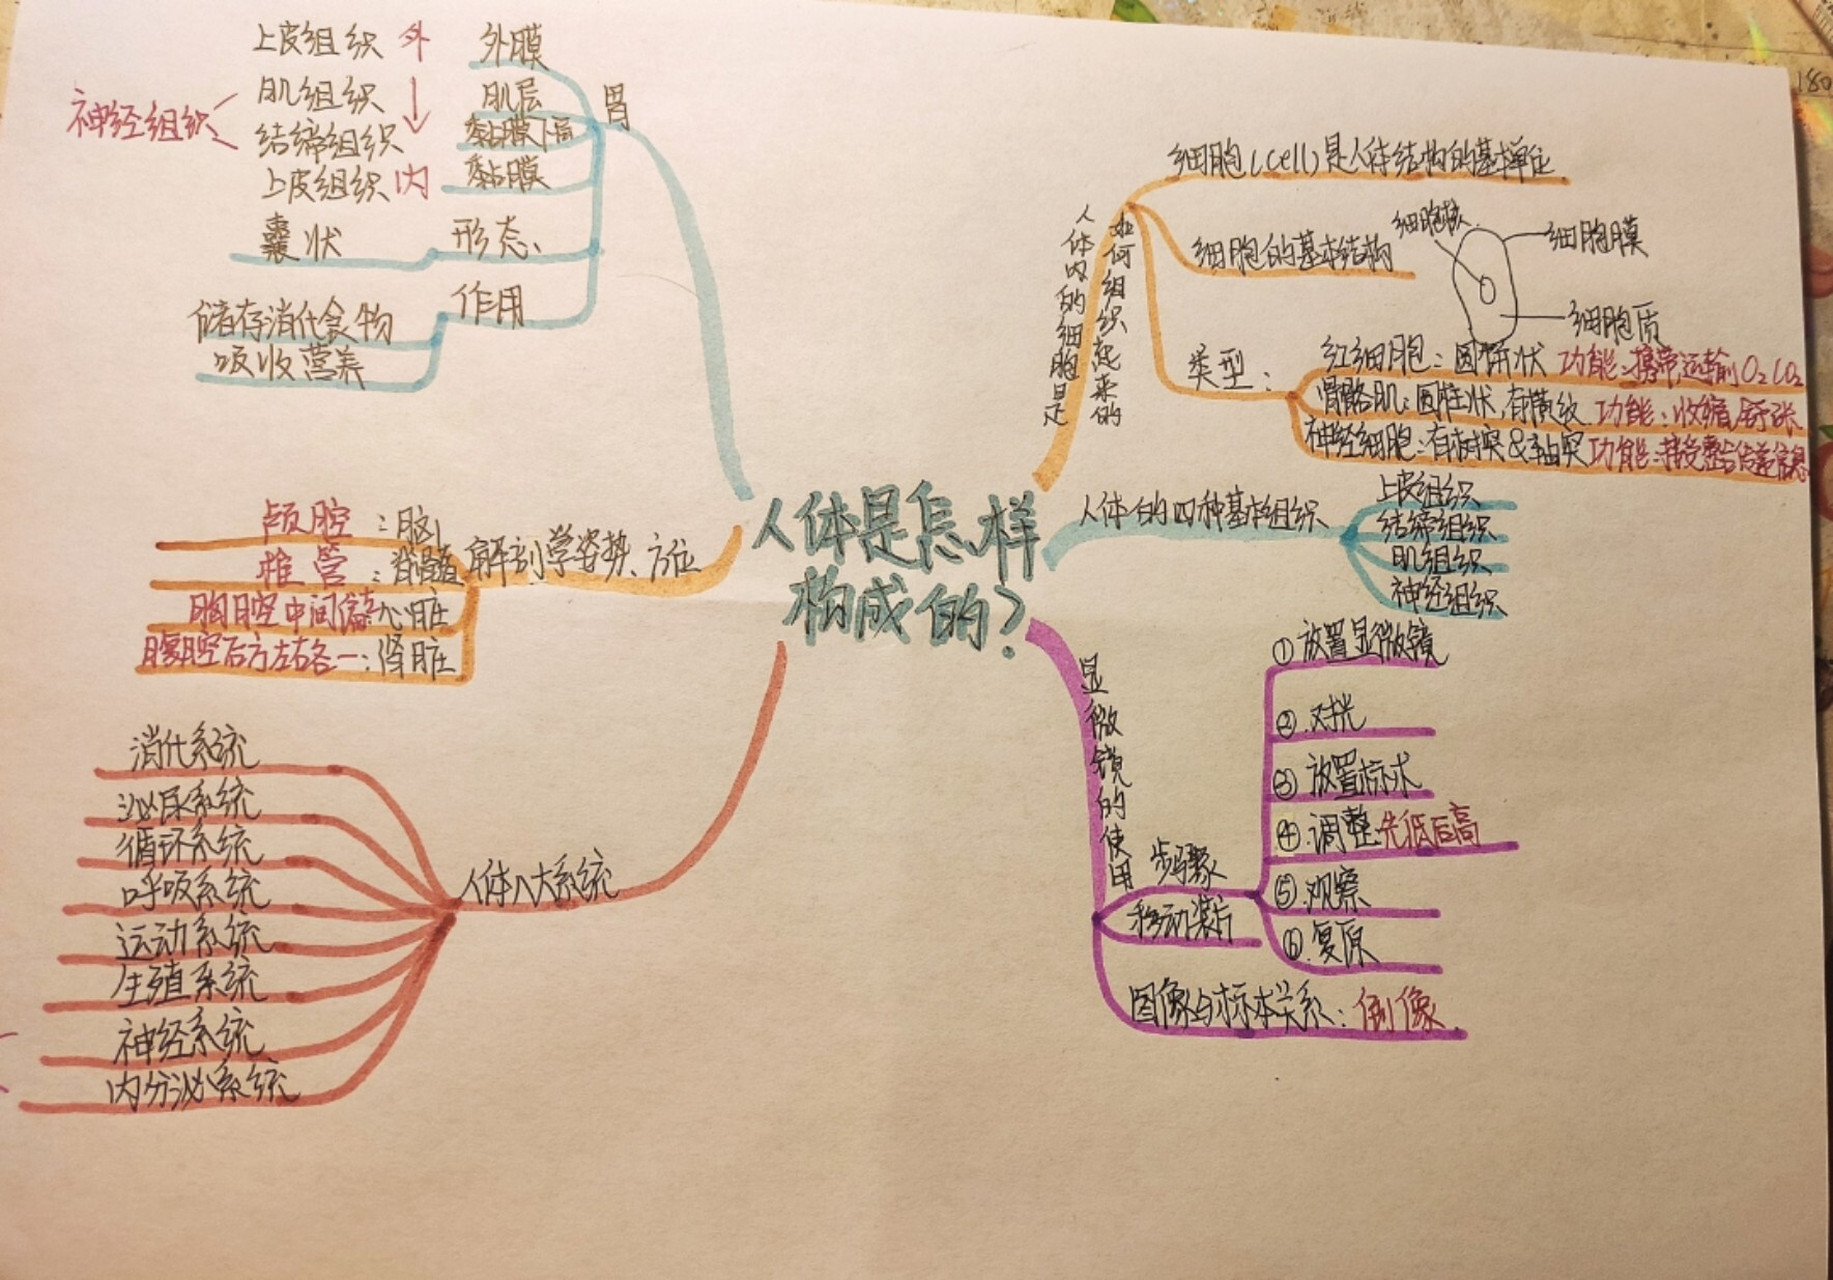 人体是怎样
构成的?
胃
外膜
肌层
黏膜下层
黏膜
上皮组织 外
肌组织
结缔组织
上皮组织 内
神经组织
形态、
囊状
作用
储存消代食物
吸收营养
解剖学姿势、方位
颅腔:脑
椎管:脊髓
胸腔中间偏左 心脏
腹腔后方左右各一:肾脏
人体八大系统
消代系统
泌尿系统
循环系统
呼吸系统
运动系统
生殖系统
神经系统
内分泌系统
人体内的细胞是
如何组织起来的
细胞(cell)是人体结构的基本单位
细胞的基本结构
细胞核
细胞膜
细胞质
类型:
红细胞:圆饼状 功能:携带运输O₂ CO₂
骨骼肌:圆柱状,有横纹 功能:收缩舒张
神经细胞:有树突&轴突 功能:接受整合传递信息
人体的四种基本组织
上皮组织
结缔组织
肌组织
神经组织
显微镜的使用
步骤
①放置显微镜
②.对光
③ 放置标本
④.调整:先低后高
⑤.观察
⑥.复原
移动装片
图像与标本关系:倒像.